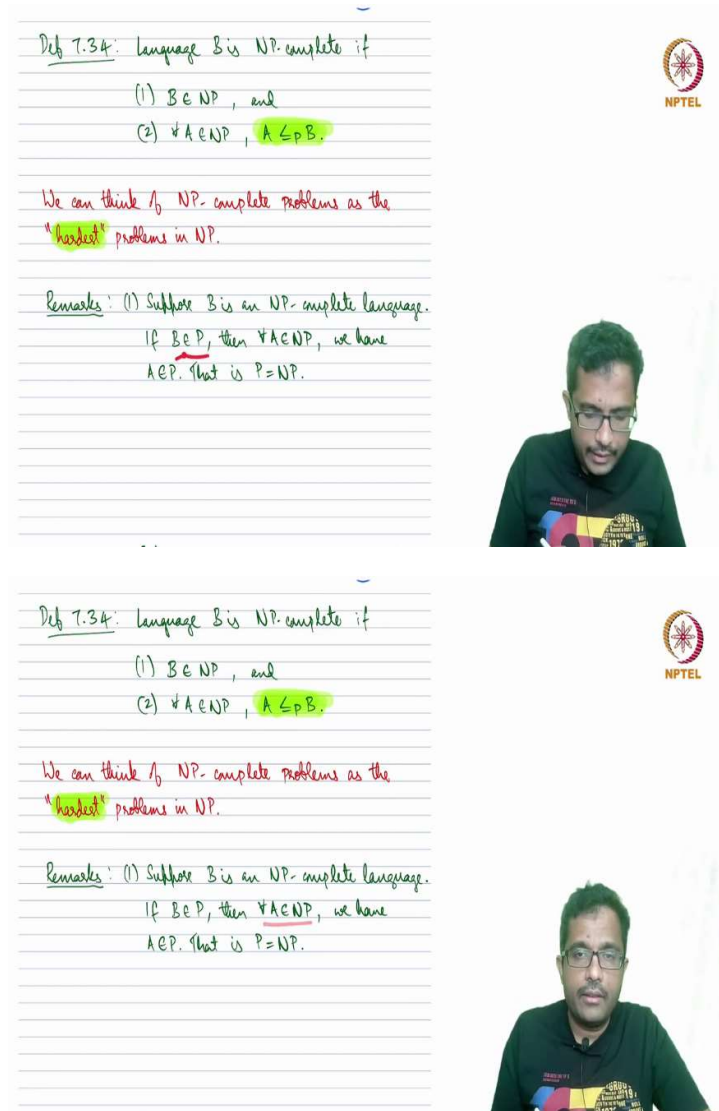 Def 7.34: Language B is NP-complete if
NPTEL
(1) B ∈ NP, and
(2) ∀A ∈ NP, A ≤p B.
We can think of NP-complete problems as the
"hardest" problems in NP.
Remarks: (1) Suppose B is an NP-complete language.
If B∈P, then ∀A∈NP, we have
A∈P. That is P=NP.
Def 7.34: Language B is NP-complete if
NPTEL
(1) B ∈ NP, and
(2) ∀A ∈ NP, A ≤p B.
We can think of NP-complete problems as the
"hardest" problems in NP.
Remarks: (1) Suppose B is an NP-complete language.
If B∈P, then ∀A∈NP, we have
A∈P. That is P=NP.